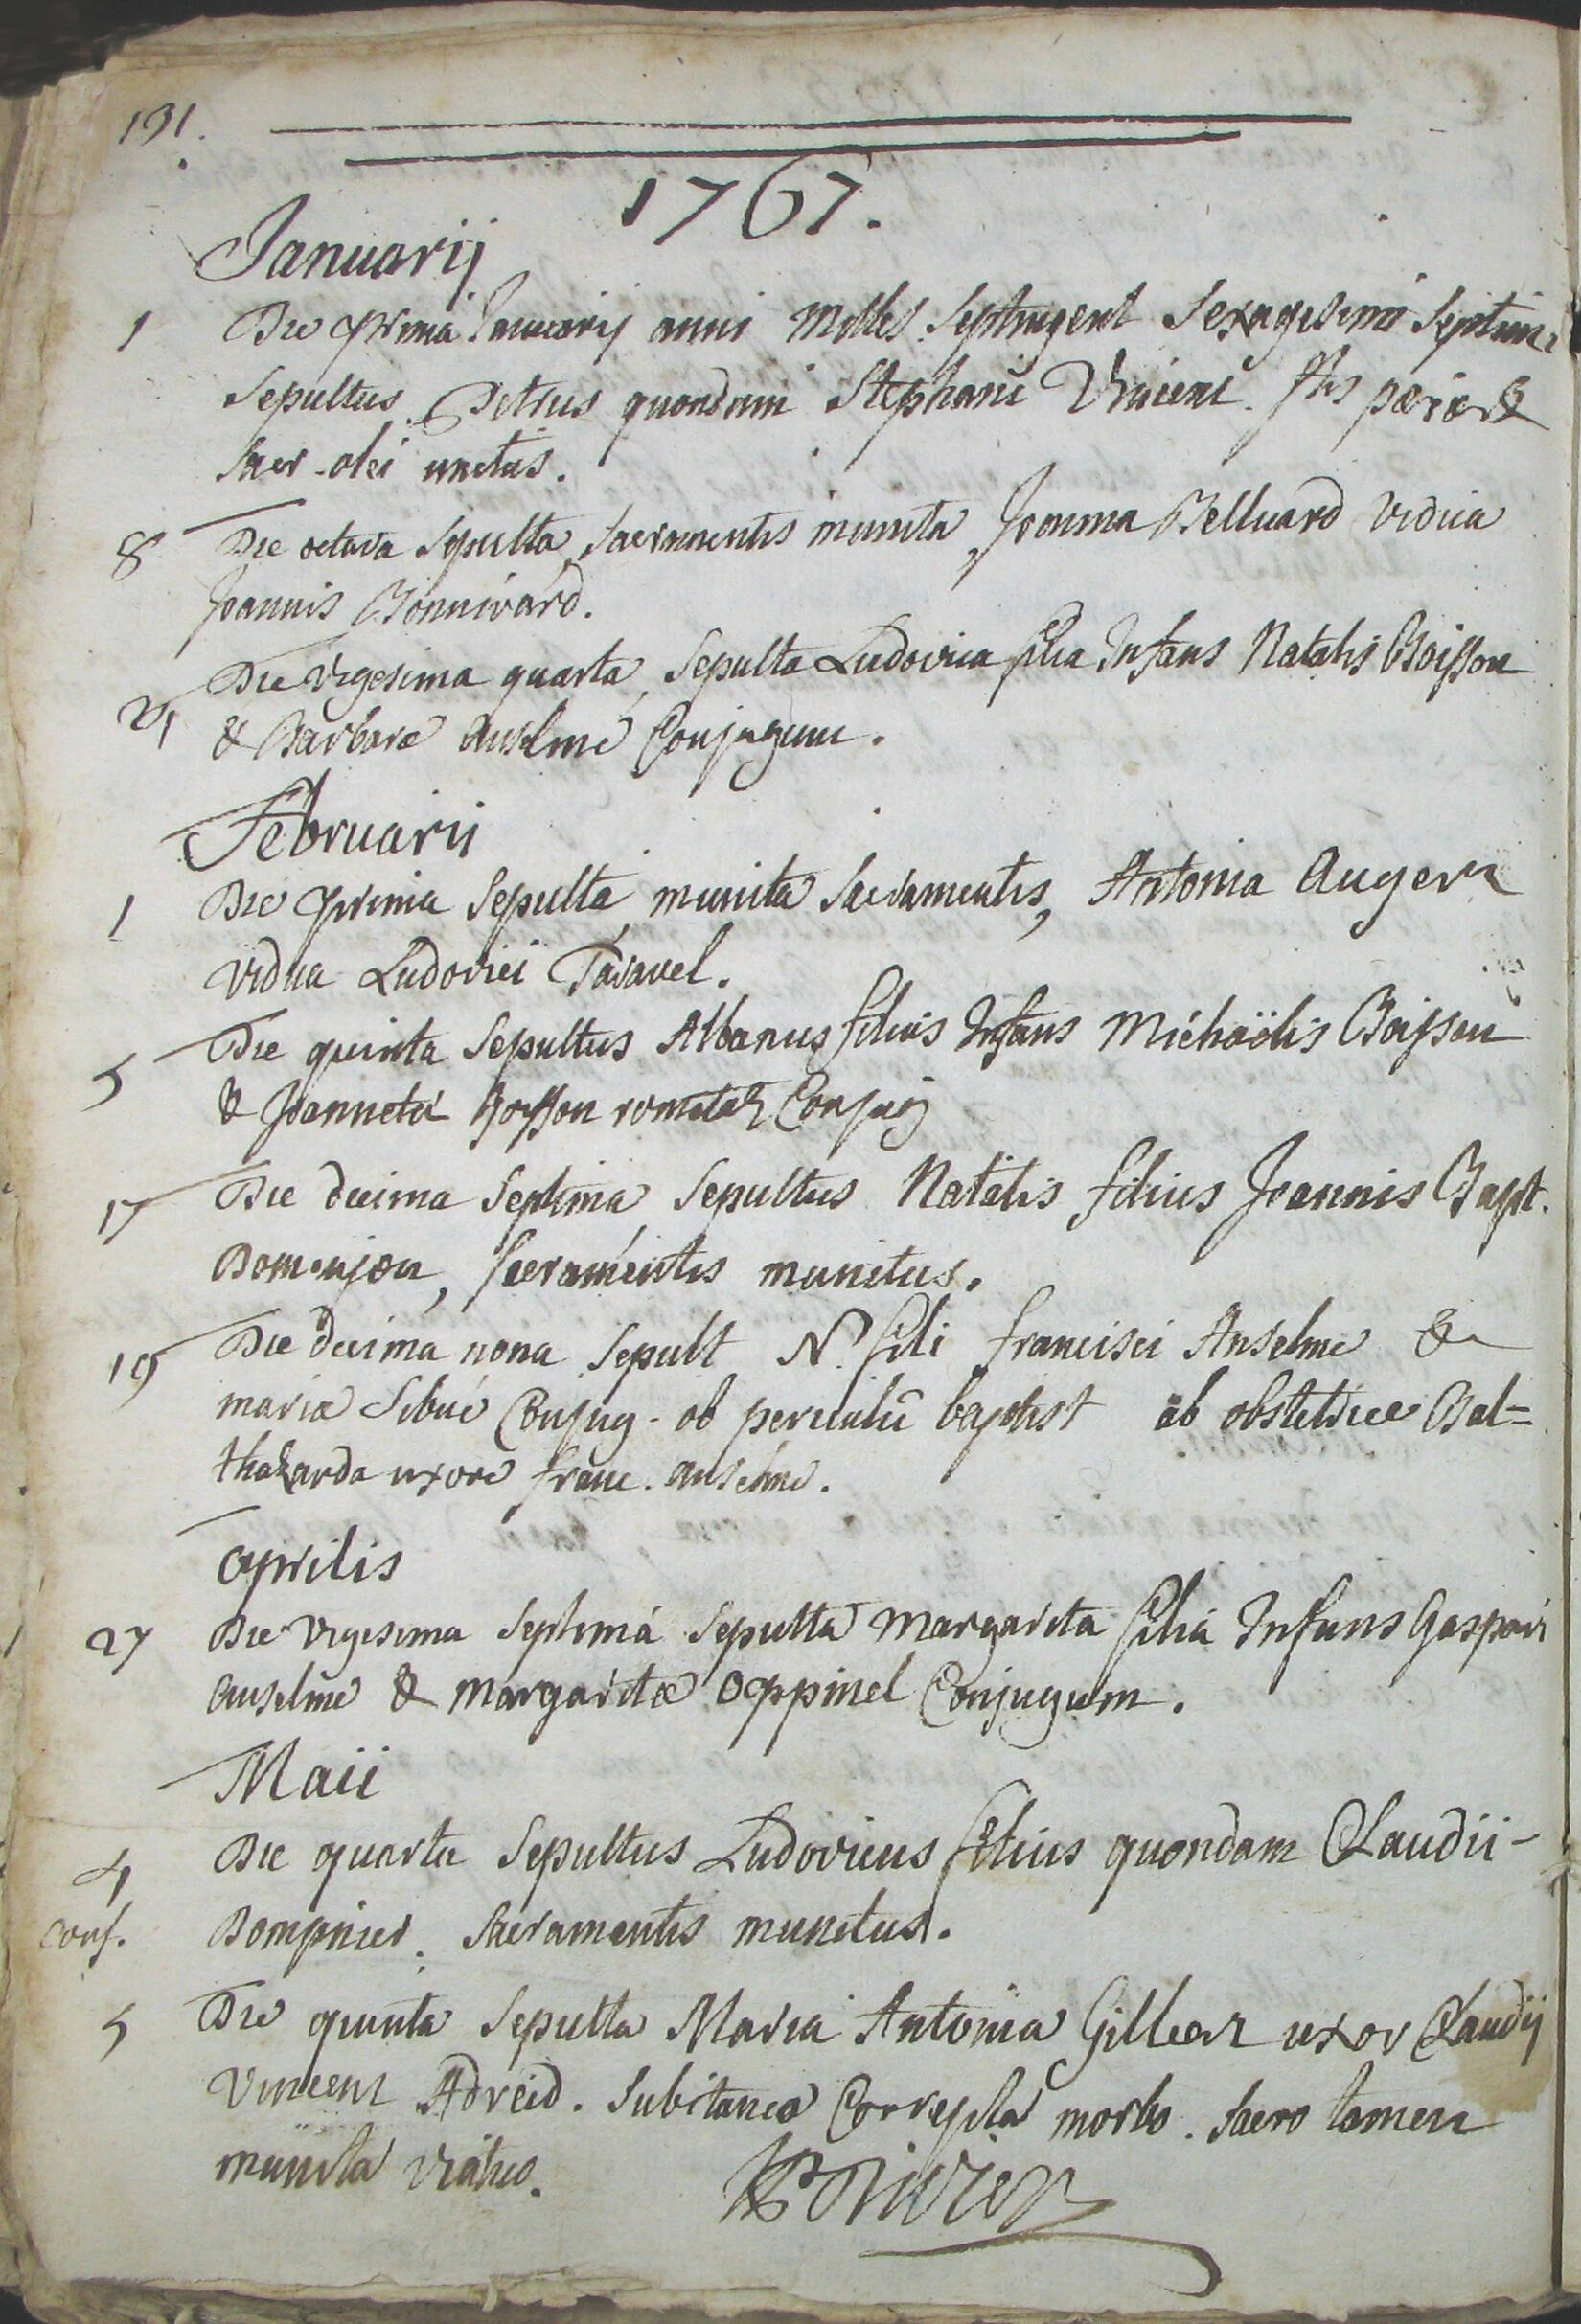 191.
1767.
Januarij
1 Die prima Januarij anni milles. septingent sexagesimi septimi
sepultus Petrus quondam Stephani Vincent.
sacr. olei unctus.
8 Die octava sepulta, sacramentis munita, Joanna Belluard vidua
Joannis Bonnivard.
24 Die vigesima quarta, sepulta Ludovica filia Infans Natalis Boisson
& Barbaræ Anselme Conjugum.
Februarii
1 Die prima sepulta munita sacramentis, Antonia Auger
vidua Ludovici Taravel.
5 Die quinta sepultus Albanus filius Infans Michaëlis Boisson
& Joannetæ Boisson Conjug
17 Die decima septima sepultus Natalis filius Joannis Bapt.
Domenjon, sacramentis munitus.
19 Die decima nona sepult N. fili francisci Anselme &
mariæ Sibué Conjug. ob periculū baptist ab obstetrice Bal=
thazarda uxore franc. anselme.
aprilis
27 Die vigesima septima sepulta margarita filia Infans Gaspari
anselme & margaritæ oppinel Conjugum.
Maii
4 Die quarta sepultus Ludovicus filius quondam Claudii-
conf. Dompnier. sacramentis munitus.
5 Die quinta sepulta Maria Antonia uxor Claudij
Vincent subitaneo Correpta morbo. sacro tamen
munita